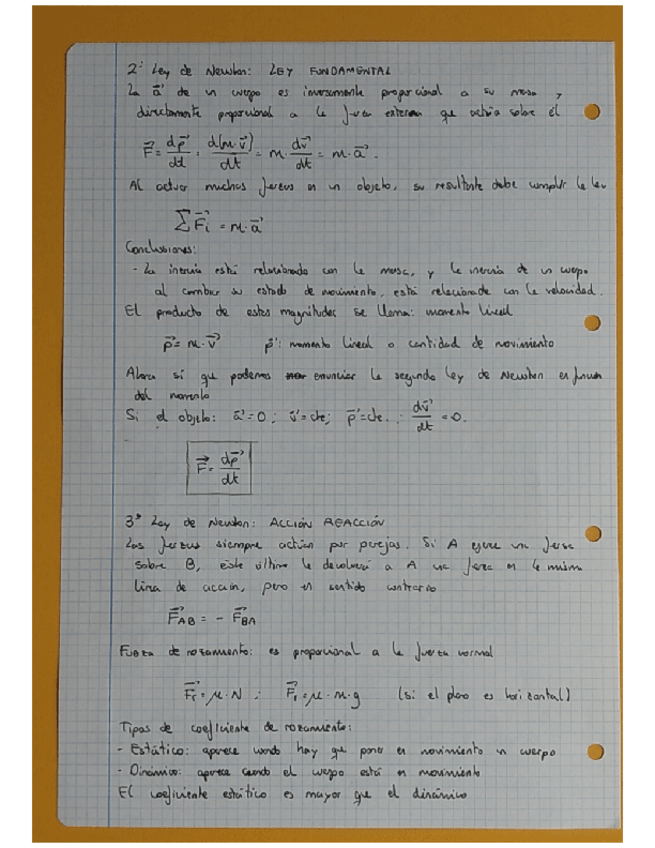 2ª Ley de Newton: LEY FUNDAMENTAL
La a⃗ de un cuerpo es inversamente proporcional a su masa y
directamente proporcional a la fuerza externa que actúa sobre él
F⃗ = dp⃗/dt = d(m·v⃗)/dt = m·dv⃗/dt = m·a⃗.
Al actuar muchas fuerzas en un objeto, su resultante debe cumplir la ley
∑F⃗i = m·a⃗
Conclusiones:
- La inercia está relacionada con la masa, y la inercia de un cuerpo
al cambiar su estado de movimiento, está relacionada con la velocidad.
El producto de estas magnitudes se llama: momento lineal
p⃗ = m·v⃗ p⃗: momento lineal o cantidad de movimiento
Ahora sí que podemos enunciar la segunda Ley de Newton en función
del momento
Si el objeto: a⃗=0; v⃗=cte; p⃗=cte. : dv⃗/dt = 0.
F⃗ = dp⃗/dt
3ª Ley de Newton: ACCIÓN REACCIÓN
Las fuerzas siempre actúan por parejas. Si A ejerce una fuerza
sobre B, este último le devolverá a A una fuerza en la misma
línea de acción, pero en sentido contrario
F⃗AB = - F⃗BA
Fuerza de rozamiento: es proporcional a la fuerza normal
F⃗r = μ·N ; F⃗r = μ·m·g (si el plano es horizontal)
Tipos de coeficiente de rozamiento:
- Estático: aparece cuando hay que poner en movimiento un cuerpo
- Dinámico: aparece cuando el cuerpo está en movimiento
El coeficiente estático es mayor que el dinámico